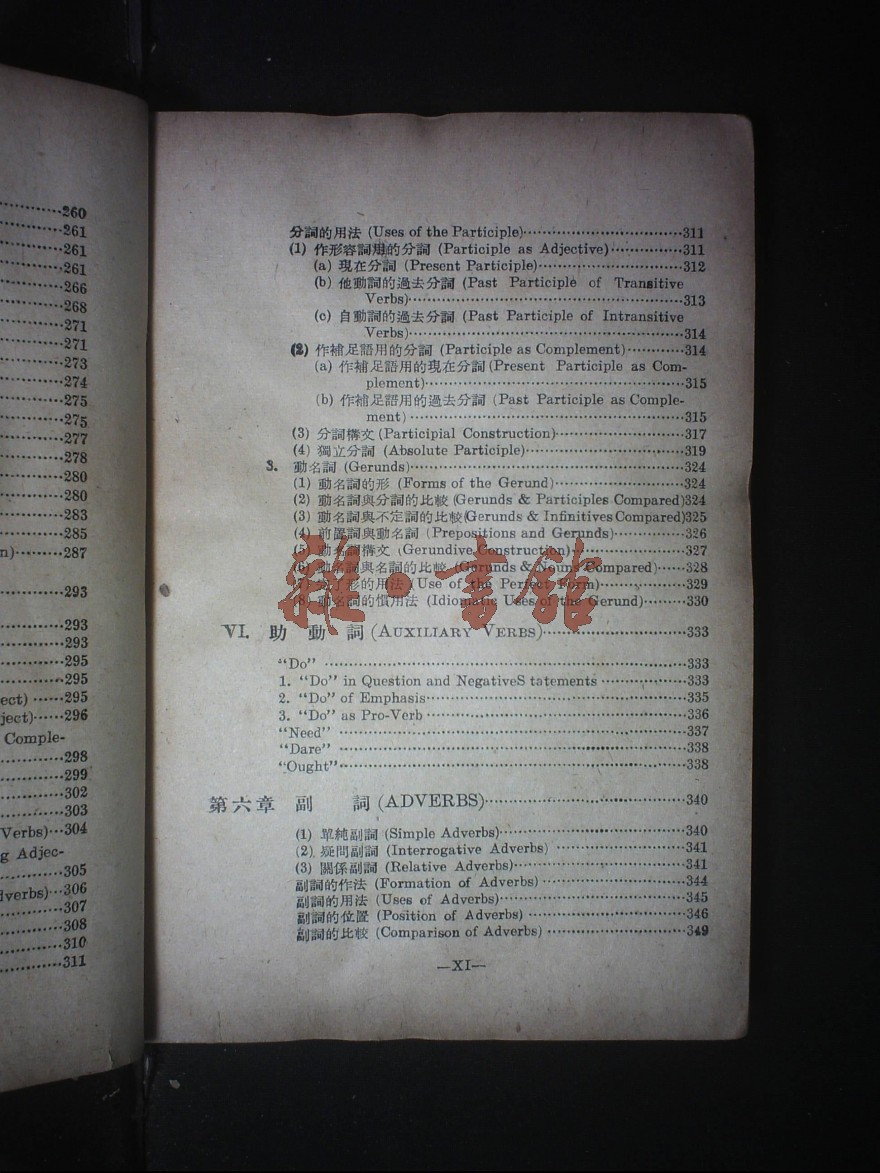 260
261
261
261
266
268
271
271
273
274
275
275
277
278
280
280
283
285
n)·········287
293
293
293
295
295
ect) ······295
ject)······296
Comple-
298
299
302
303
Verbs)···304
g Adjec-
305
dverbs)···306
307
308
310
311
分詞的用法 (Uses of the Participle)······························311
(1) 作形容詞用的分詞 (Participle as Adjective)··············311
(a) 現在分詞 (Present Participle)····························312
(b) 他動詞的過去分詞 (Past Participle of Transitive
Verbs)······················································313
(c) 自動詞的過去分詞 (Past Participle of Intransitive
Verbs)······················································314
(2) 作補足語用的分詞 (Participle as Complement)············314
(a) 作補足語用的現在分詞 (Present Participle as Com-
plement)···················································315
(b) 作補足語用的過去分詞 (Past Participle as Comple-
ment) ······················································315
(3) 分詞構文 (Participial Construction)··························317
(4) 獨立分詞 (Absolute Participle)································319
3. 動名詞 (Gerunds)······················································324
(1) 動名詞的形 (Forms of the Gerund)··························324
(2) 動名詞與分詞的比較 (Gerunds & Participles Compared)324
(3) 動名詞與不定詞的比較(Gerunds & Infinitives Compared)325
(4) 前置詞與動名詞 (Prepositions and Gerunds)··············326
(5) 動名詞構文 (Gerundive Construction)······················327
(6) 動名詞與名詞的比較 (Gerunds & Nouns Compared)······328
(7) 完了形的用法 (Use of the Perfect Form)··················329
(8) 動名詞的慣用法 (Idiomatic Uses of the Gerund)·········330
雜·書館
VI. 助 動 詞 (AUXILIARY VERBS)····························333
“Do” ······································································333
1. “Do” in Question and NegativeS tatements ················333
2. “Do” of Emphasis··················································335
3. “Do” as Pro-Verb ··················································336
“Need” ··································································337
“Dare” ··································································338
“Ought”··································································338
第六章 副 詞 (ADVERBS)········································340
(1) 單純副詞 (Simple Adverbs)····································340
(2) 疑問副詞 (Interrogative Adverbs) ··························341
(3) 關係副詞 (Relative Adverbs)··································341
副詞的作法 (Formation of Adverbs) ····························344
副詞的用法 (Uses of Adverbs)····································345
副詞的位置 (Position of Adverbs) ······························346
副詞的比較 (Comparison of Adverbs) ··························349
—XI—